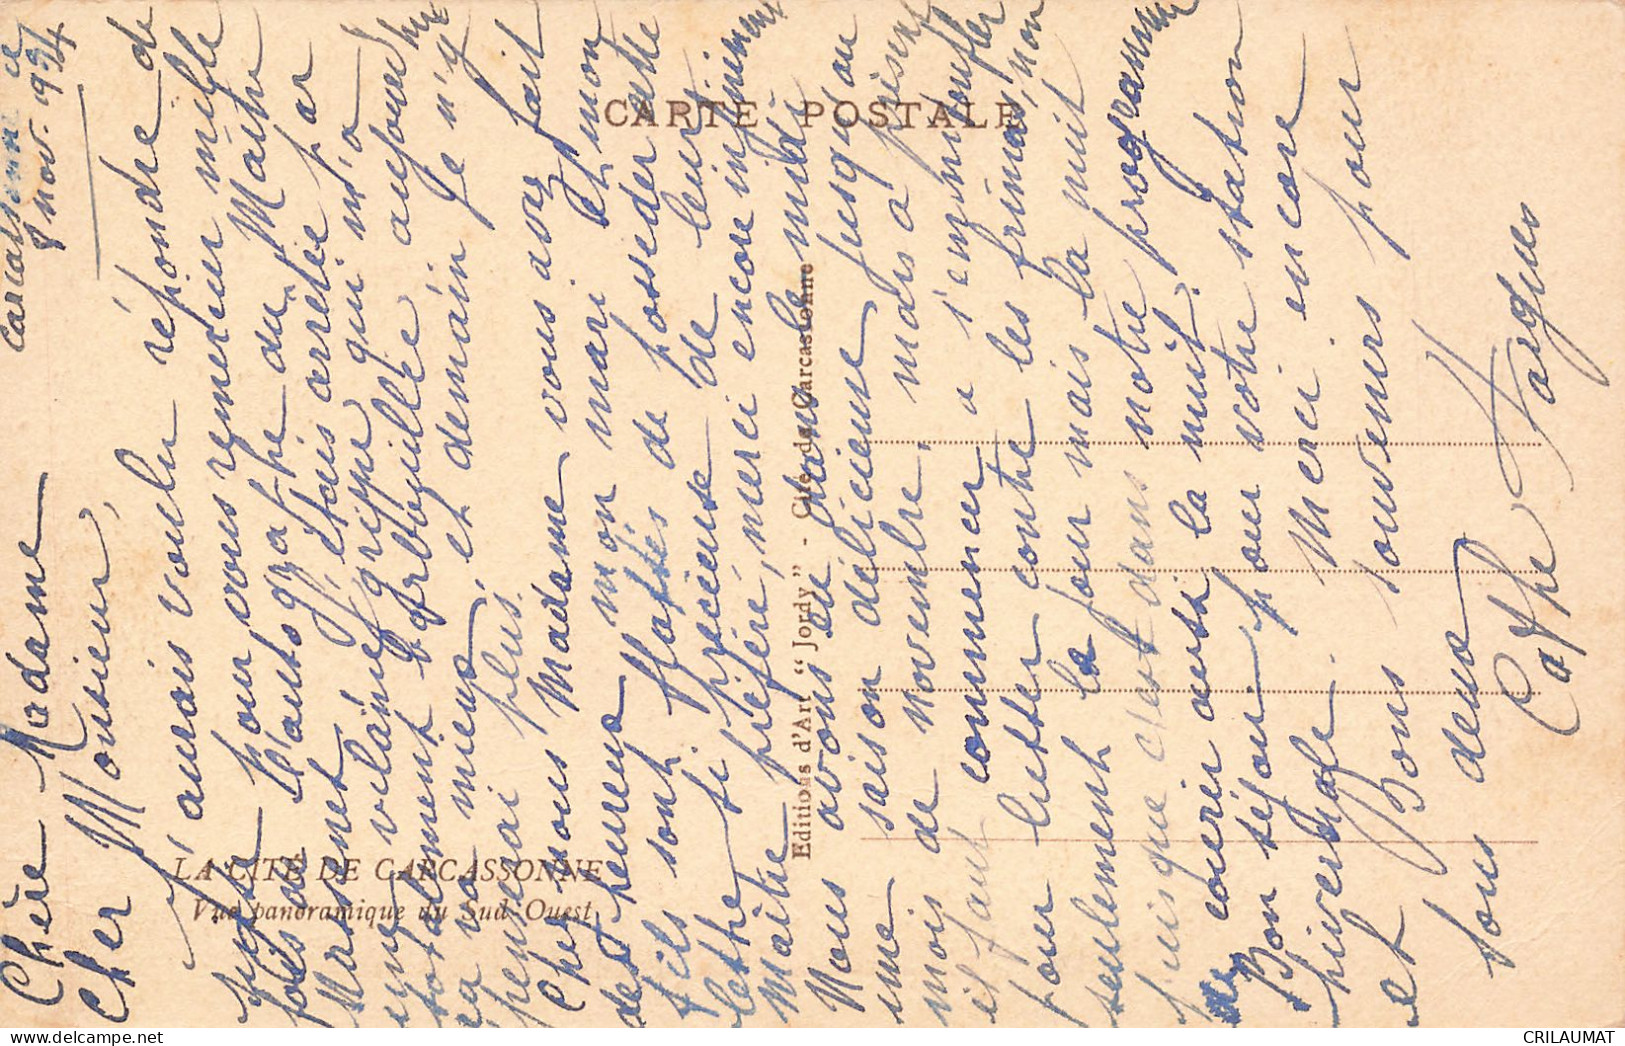 Carcassonne ce
8 nov. 1934
Chère Madame
Cher Monsieur,
J'aurais voulu répondre de
suite pour vous remercier mille
fois de l'autographe du Maître
Massenet. J'étais arrêtée par
une vilaine grippe qui m'a
totalement barbouillée aujourd'hui
ça va mieux, et demain je n'y
penserai plus.
Chez vous Madame vous avez fait
des heureux mon mari et mon
fils sont flattés de posséder cette
lettre si précieuse de leur
Maître préféré, merci encore infiniment
Nous avons eu dans le midi
une saison délicieuse jusqu'au
mois de novembre, mais à présent
il faut commencer à s'emmitoufler
pour lutter contre les frimas, non
seulement le jour mais la nuit
puisque c'est dans notre programme
de courir aussi la nuit.
Bon séjour pour votre station
hivernale. Merci encore
et Bons souvenirs pour
tous deux
CARTE POSTALE
Editions d'Art "Jordy" - Cité de Carcassonne
LA CITÉ DE CARCASSONNE
Vue panoramique du Sud-Ouest
CRILAUMAT